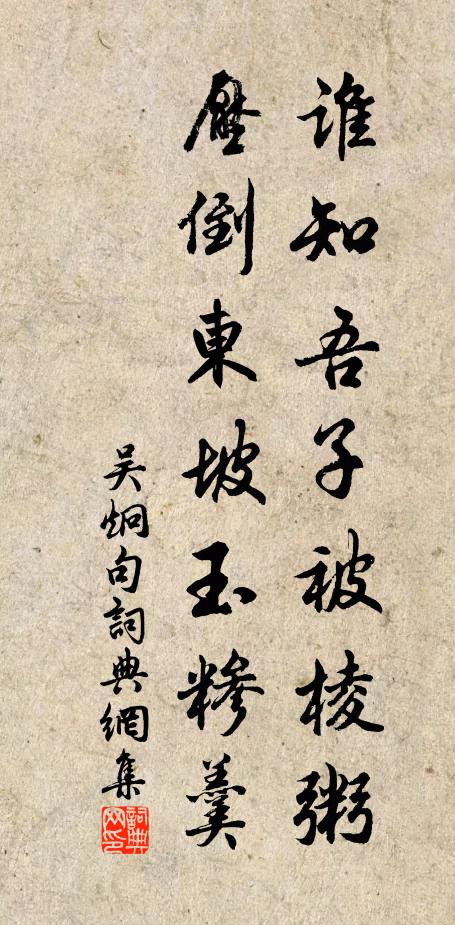 誰知吾子被棱粥
壓倒東坡玉糝羹
吴炯句詞典網集
詞典網印